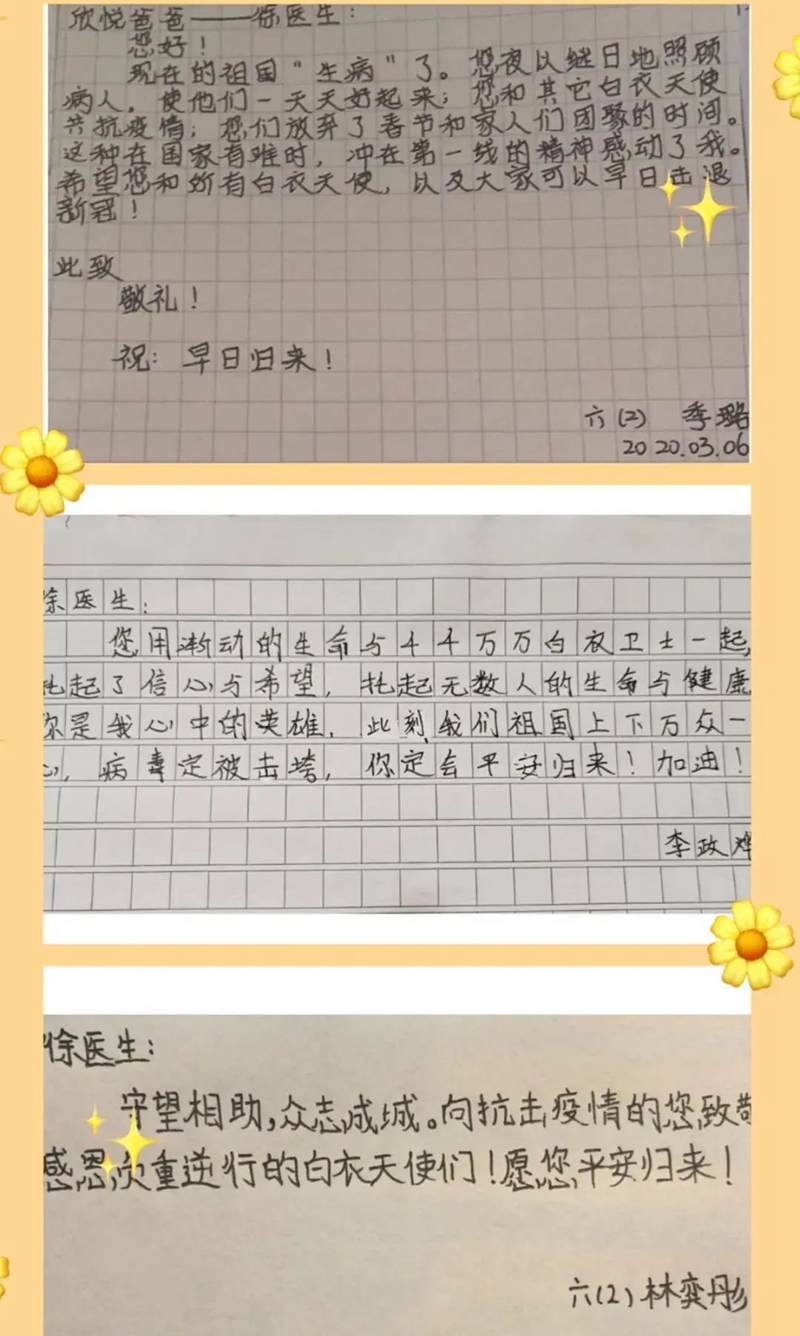 欣悦爸爸——徐医生:
您好!
现在的祖国"生病"了。您夜以继日地照顾
病人,使他们一天天好起来;您和其它白衣天使
共抗疫情;您们放弃了春节和家人们团聚的时间。
这种在国家有难时,冲在第一线的精神感动了我。
希望您和所有白衣天使,以及大家可以早日击退
新冠!
此致
敬礼!
祝:早日归来!
六(2) 季璐
2020.03.06
徐医生:
您用渐动的生命与千千万万白衣卫士一起,
托起了信心与希望,托起无数人的生命与健康
你是我心中的英雄,此刻,我们祖国上下万众一
心,病毒定被击垮,你定会平安归来!加油!
李政
徐医生:
守望相助,众志成城。向抗击疫情的您致敬
感恩负重逆行的白衣天使们!愿您平安归来!
六(2)林奕彤